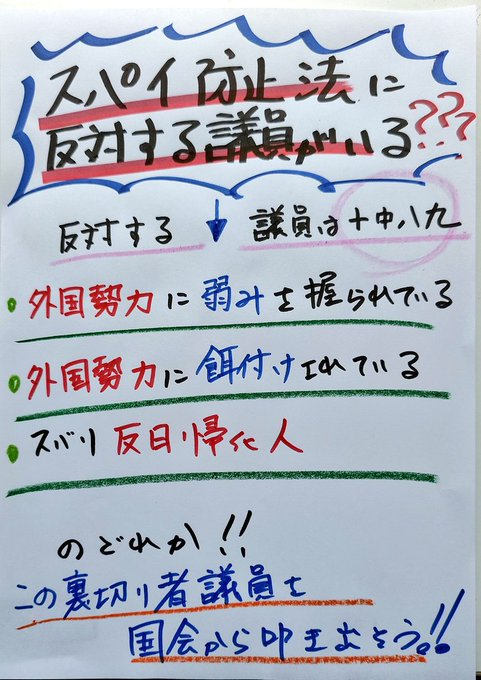 スパイ防止法に
反対する議員がいる???
反対する 議員は十中八九
外国勢力に弱みを握られている
外国勢力に餌付けされている
ズバリ反日帰化人
のどれか!!
この裏切り者議員を
国会から叩き出そう!!